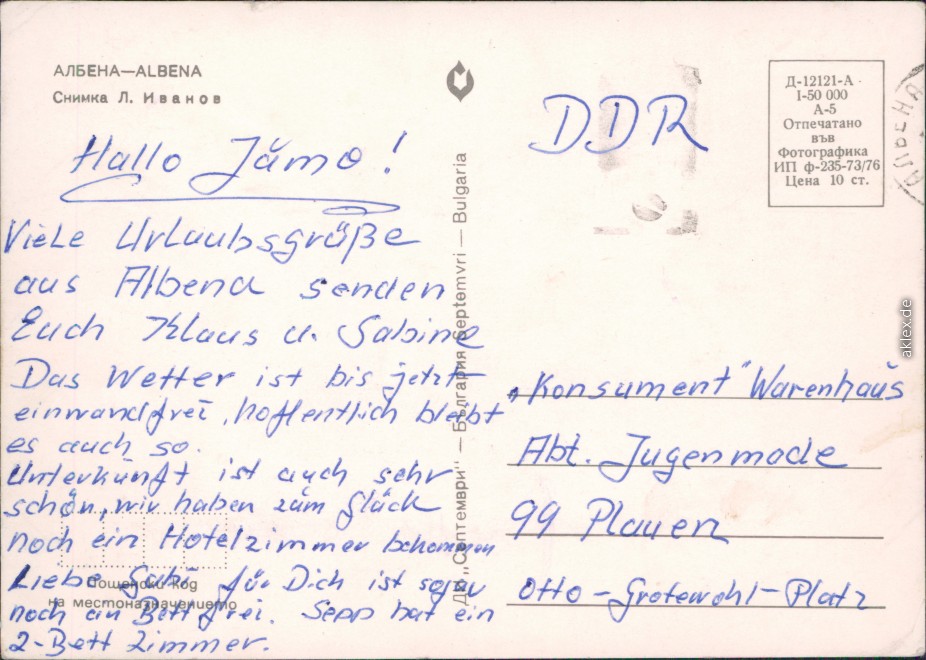 АЛБЕНА—ALBENA
Снимка Л. Иванов
Hallo Jämo!
Viele Urlaubsgrüße
aus Albena senden
Euch Klaus u. Sabine
Das Wetter ist bis jetzt
einwandfrei, hoffentlich bleibt
es auch so.
Unterkunft ist auch sehr
schön, wir haben zum Glück
noch ein Hotelzimmer bekommen
Liebe für Dich ist sogar
noch ein Bett frei. Sepp hat ein
2-Bett Zimmer.
Пощенски код
на местоназначението
ДИ „Септември" — България Septemvri — Bulgaria
DDR
Д-12121-А
I-50 000
А-5
Отпечатано
във
Фотографика
ИП ф-235-73/76
Цена 10 ст.
АЛБЕНА
„Konsument" Warenhaus
Abt. Jugenmode
99 Plauen
Otto-Grotewohl-Platz
aklex.de